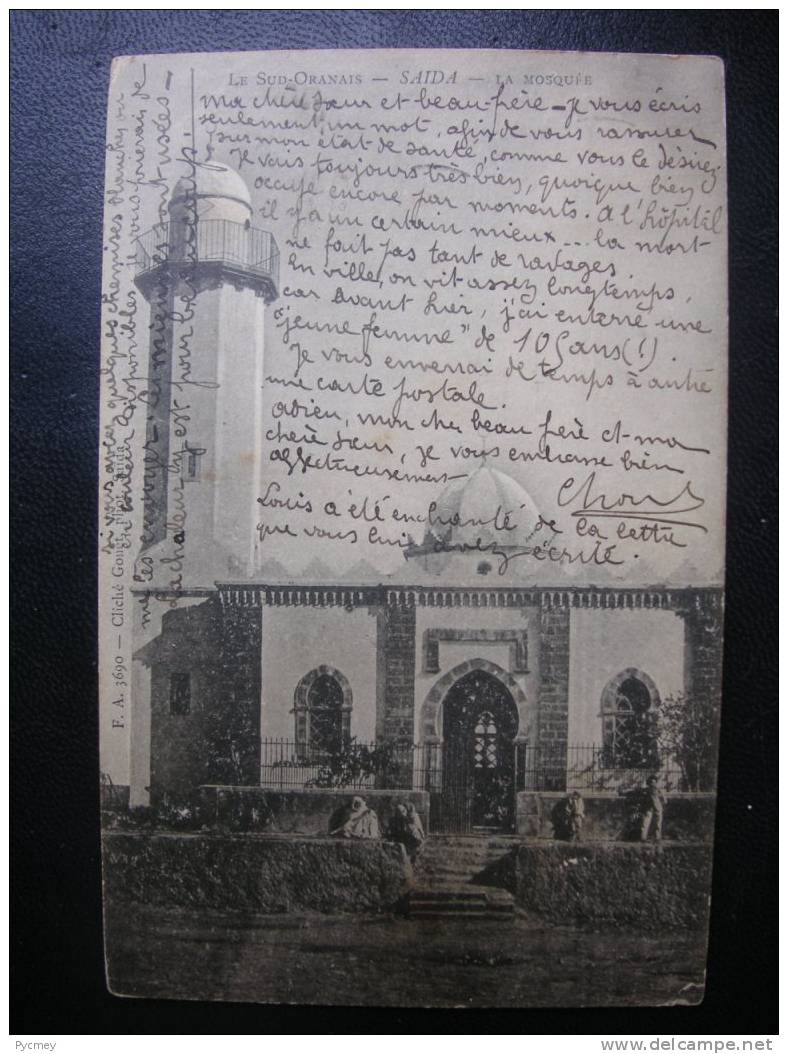 LE SUD-ORANAIS — SAIDA — LA MOSQUÉE
ma chère sœur et beau-frère — je vous écris
seulement un mot, afin de vous rassurer
sur mon état de santé, comme vous le désirez.
Je vais toujours très bien, quoique bien
occupé encore par moments. A l'hôpital
il y a un certain mieux ... la mort
ne fait pas tant de ravages.
En ville, on vit assez longtemps,
car avant hier, j'ai enterré une
"jeune femme" de 105 ans (!).
Je vous enverrai de temps à autre
une carte postale.
adieu, mon cher beau frère et ma
chère sœur, je vous embrasse bien
affectueusement
Louis a été enchanté de la lettre
que vous lui avez écrite.
si vous avez quelques chemises blanches ou
en couleur disponibles, je vous prierais de
me les envoyer. Les miennes sont usées —
La chaleur y est pour beaucoup.
F. A. 3690 — Cliché Phot. Saïda
Pycmey
www.delcampe.net